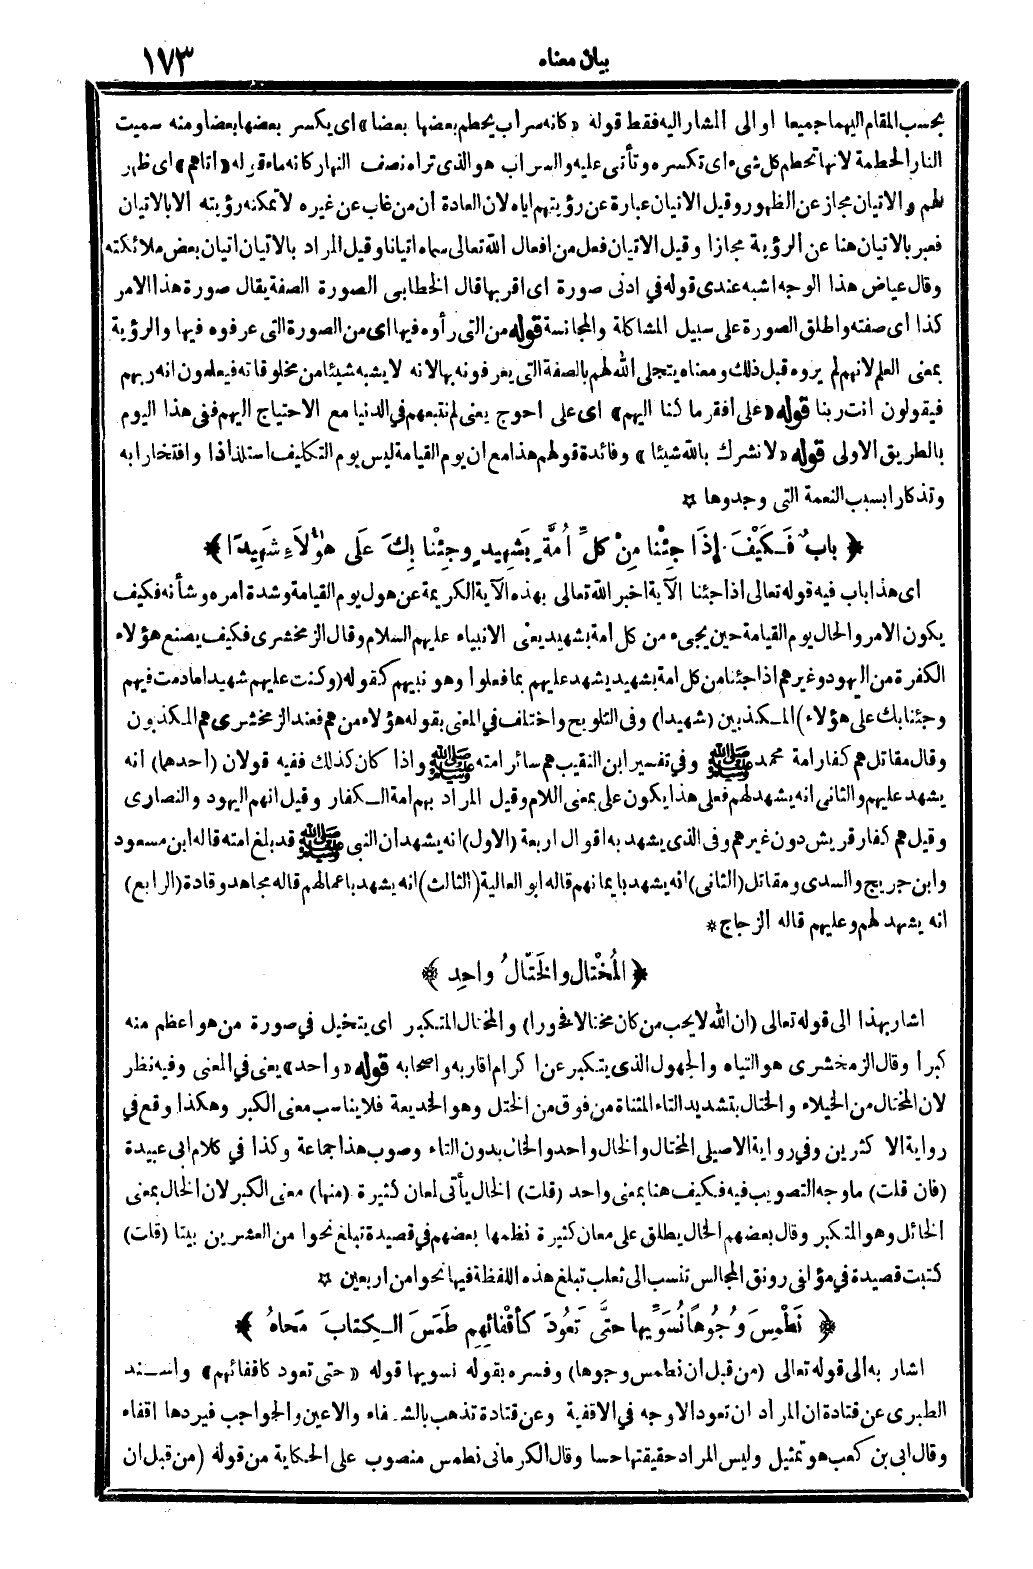 بيان معناه
١٧٣
بحسب المقام اليهما جميعا او الى المشار اليه فقط قوله «كانه سراب يحطم بعضها بعضا» اى يكسر بعضها بعضا ومنه سميت
النار الحطمة لانها تحطم كل شىء اى تكسره وتأتى عليه والسراب هو الذى تراه نصف النهار كانه ماء قوله «اتاهم» اى ظهر
لهم والاتيان مجاز عن الظهور وقيل الاتيان عبارة عن رؤيتهم اياه لان العادة ان من غاب عن غيره لا تمكنه رؤيته الا بالاتيان
فعبر بالاتيان هنا عن الرؤية مجازا وقيل الاتيان فعل من افعال الله تعالى سماه اتيانا وقيل المراد بالاتيان اتيان بعض ملائكته
وقال عياض هذا الوجه اشبه عندى قوله في ادنى صورة اى اقربها قال الخطابى الصورة الصفة يقال صورة هذا الامر
كذا اى صفته واطلق الصورة على سبيل المشاكلة والمجانسة قوله من التى رأوه فيها اى من الصورة التى عرفوه فيها والرؤية
بمعنى العلم لانهم لم يروه قبل ذلك ومعناه يتجلى الله لهم بالصفة التى يعرفونه بها لانه لا يشبه شيئا من مخلوقاته فيعلمون انه ربهم
فيقولون انت ربنا قوله «على افقر ما كنا اليهم» اى على احوج يعنى لم نتبعهم في الدنيا مع الاحتياج اليهم ففى هذا اليوم
بالطريق الاولى قوله «لا نشرك بالله شيئا» وفائدة قولهم هذا مع ان يوم القيامة ليس يوم التكليف استلذاذا وافتخارا به
وتذكارا بسبب النعمة التى وجدوها ✡
﴿ بابٌ فَكَيْفَ إذَا جِئْنا مِنْ كلِّ أُمَّةٍ بَشَهِيدٍ وجِئْنا بِكَ عَلَى هٰؤلاَءِ شَهِيدًا ﴾
اى هذا باب فيه قوله تعالى اذا جئنا الآية اخبر الله تعالى بهذه الآية الكريمة عن هول يوم القيامة وشدة امره وشأنه فكيف
يكون الامر والحال يوم القيامة حين يجىء من كل امة بشهيد يعنى الانبياء عليهم السلام وقال الزمخشرى فكيف يصنع هؤلاء
الكفرة من اليهود وغيرهم اذا جئنا من كل امة بشهيد يشهد عليهم بما فعلوا وهو نبيهم كقوله (وكنت عليهم شهيدا ما دمت فيهم
وجئنا بك على هؤلاء) المكذبين (شهيدا) وفى التلويح واختلف في المعنى بقوله هؤلاء من هم فعند الزمخشرى هم المكذبون
وقال مقاتل هم كفار امة محمد ﷺ وفي تفسير ابن النقيب هم سائر امته ﷺ واذا كان كذلك ففيه قولان (احدهما) انه
يشهد عليهم والثانى انه يشهد لهم فعلى هذا يكون على بمعنى اللام وقيل المراد بهم امة الكفار وقيل انهم اليهود والنصارى
وقيل هم كفار قريش دون غيرهم وفى الذى يشهد به اقوال اربعة (الاول) انه يشهد ان النبى ﷺ قد بلغ امته قاله ابن مسعود
وابن جريج والسدى ومقاتل (الثانى) انه يشهد بايمانهم قاله ابو العالية (الثالث) انه يشهد باعمالهم قاله مجاهد وقادة (الرابع)
انه يشهد لهم وعليهم قاله الزجاج *
﴿ المُخْتال والخَتّالُ واحِد ﴾
اشار بهذا الى قوله تعالى (ان الله لا يحب من كان مختالا فخورا) والمختال المتكبر اى يتخيل في صورة من هو اعظم منه
كبرا وقال الزمخشرى هو التياه والجهول الذى يتكبر عن اكرام اقاربه واصحابه قوله «واحد» يعنى في المعنى وفيه نظر
لان المختال من الخيلاء والختال بتشديد التاء المثناة من فوق من الختل وهو الخديعة فلا يناسب معنى الكبر وهكذا وقع في
رواية الاكثرين وفي رواية الاصيلى المختال والخال واحد والخال بدون التاء وصوب هذا جماعة وكذا في كلام ابى عبيدة
(فان قلت) ما وجه التصويب فيه فكيف هنا بمعنى واحد (قلت) الخال يأتى لمعان كثيرة (منها) معنى الكبر لان الخال بمعنى
الخائل وهو المتكبر وقال بعضهم الخال يطلق على معان كثيرة نظمها بعضهم في قصيدة تبلغ نحوا من العشرين بيتا (قلت)
كتبت قصيدة في مؤلفى رونق المجالس تنسب الى ثعلب تبلغ هذه اللفظة فيها نحوا من اربعين ✡
﴿ نَطْمِسَ وُجُوهًا نُسَوِّيها حتَّى تَعُودَ كأقْفائِهِم طَمَسَ الكِتابَ مَحاهُ ﴾
اشار به الى قوله تعالى (من قبل ان نطمس وجوها) وفسره بقوله نسويها قوله «حتى تعود كاقفائهم» واسند
الطبرى عن قتادة ان المراد ان تعود الاوجه في الاقفية وعن قتادة تذهب بالشفاء والاعين والحواجب فيردها اقفاء
وقال ابى بن كعب هو تمثيل وليس المراد حقيقتها حسا وقال الكرمانى نطمس منصوب على الحكاية من قوله (من قبل ان